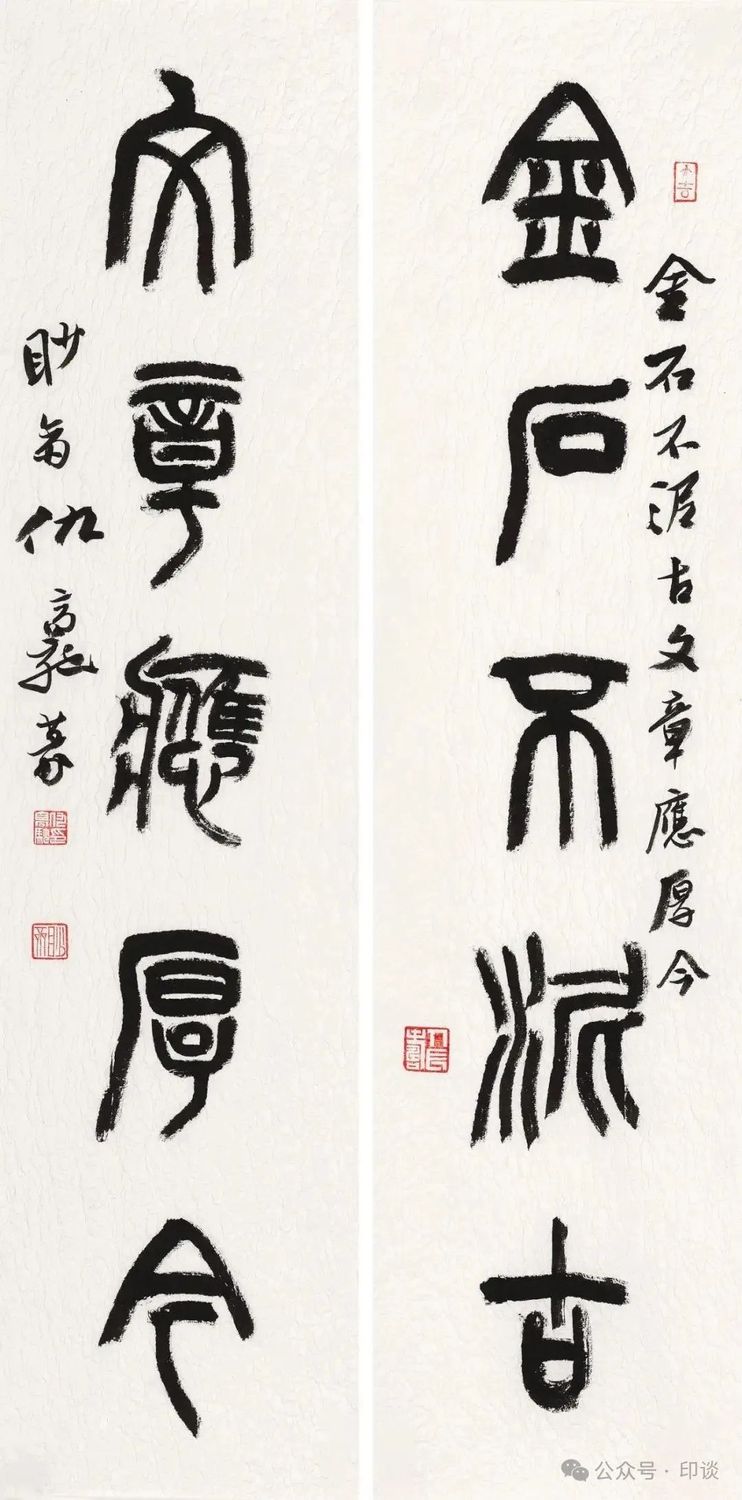 金石不泥古文章應厚今
金石不泥古
文章應厚今
仇高馳篆
公众号·印谈